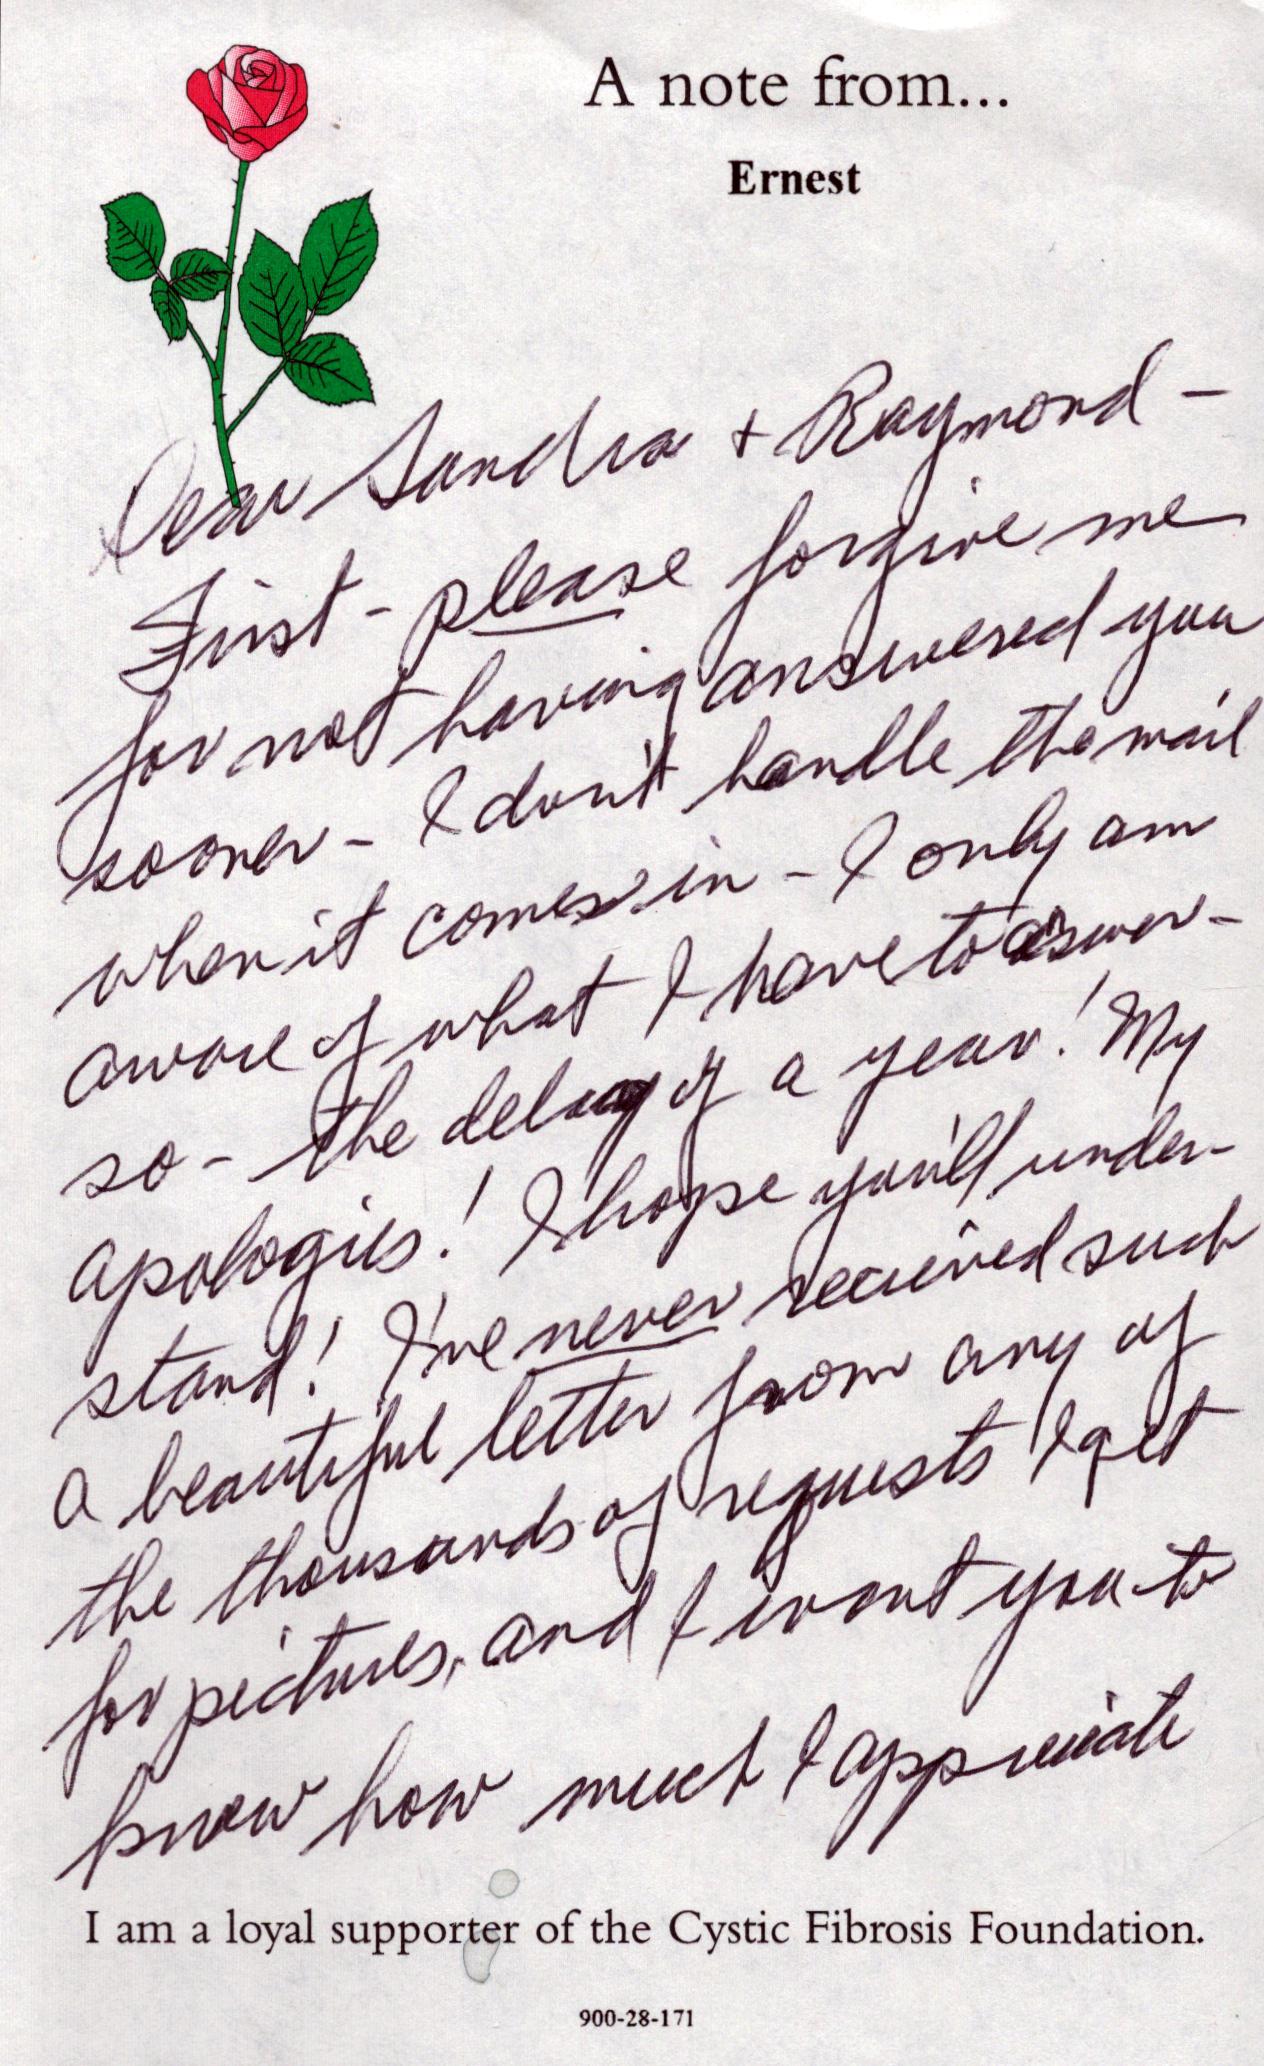 A note from...
Ernest
Dear Sandra + Raymond -
First - please forgive me
for not having answered you
sooner - I don't handle the mail
when it comes in - I only am
aware of what I have to answer -
so - the delay of a year! My
apologies! I hope you'll under-
stand! I've never recieved such
a beautiful letter from any of
the thousands of requests I get
for pictures, and I want you to
know how much I appreciate
I am a loyal supporter of the Cystic Fibrosis Foundation.
900-28-171